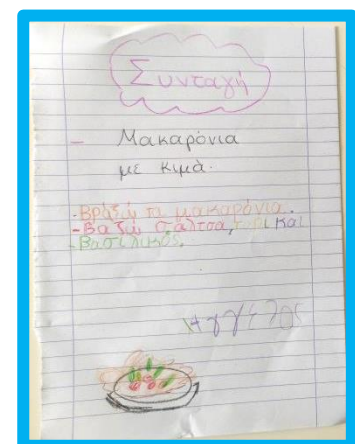 Συνταγή
- Μακαρόνια
με κιμά.
-Βράζω τα μακαρόνια.
-Βαζω σάλτσα, τυρι και
-Βασιλικός.
Αγγελος